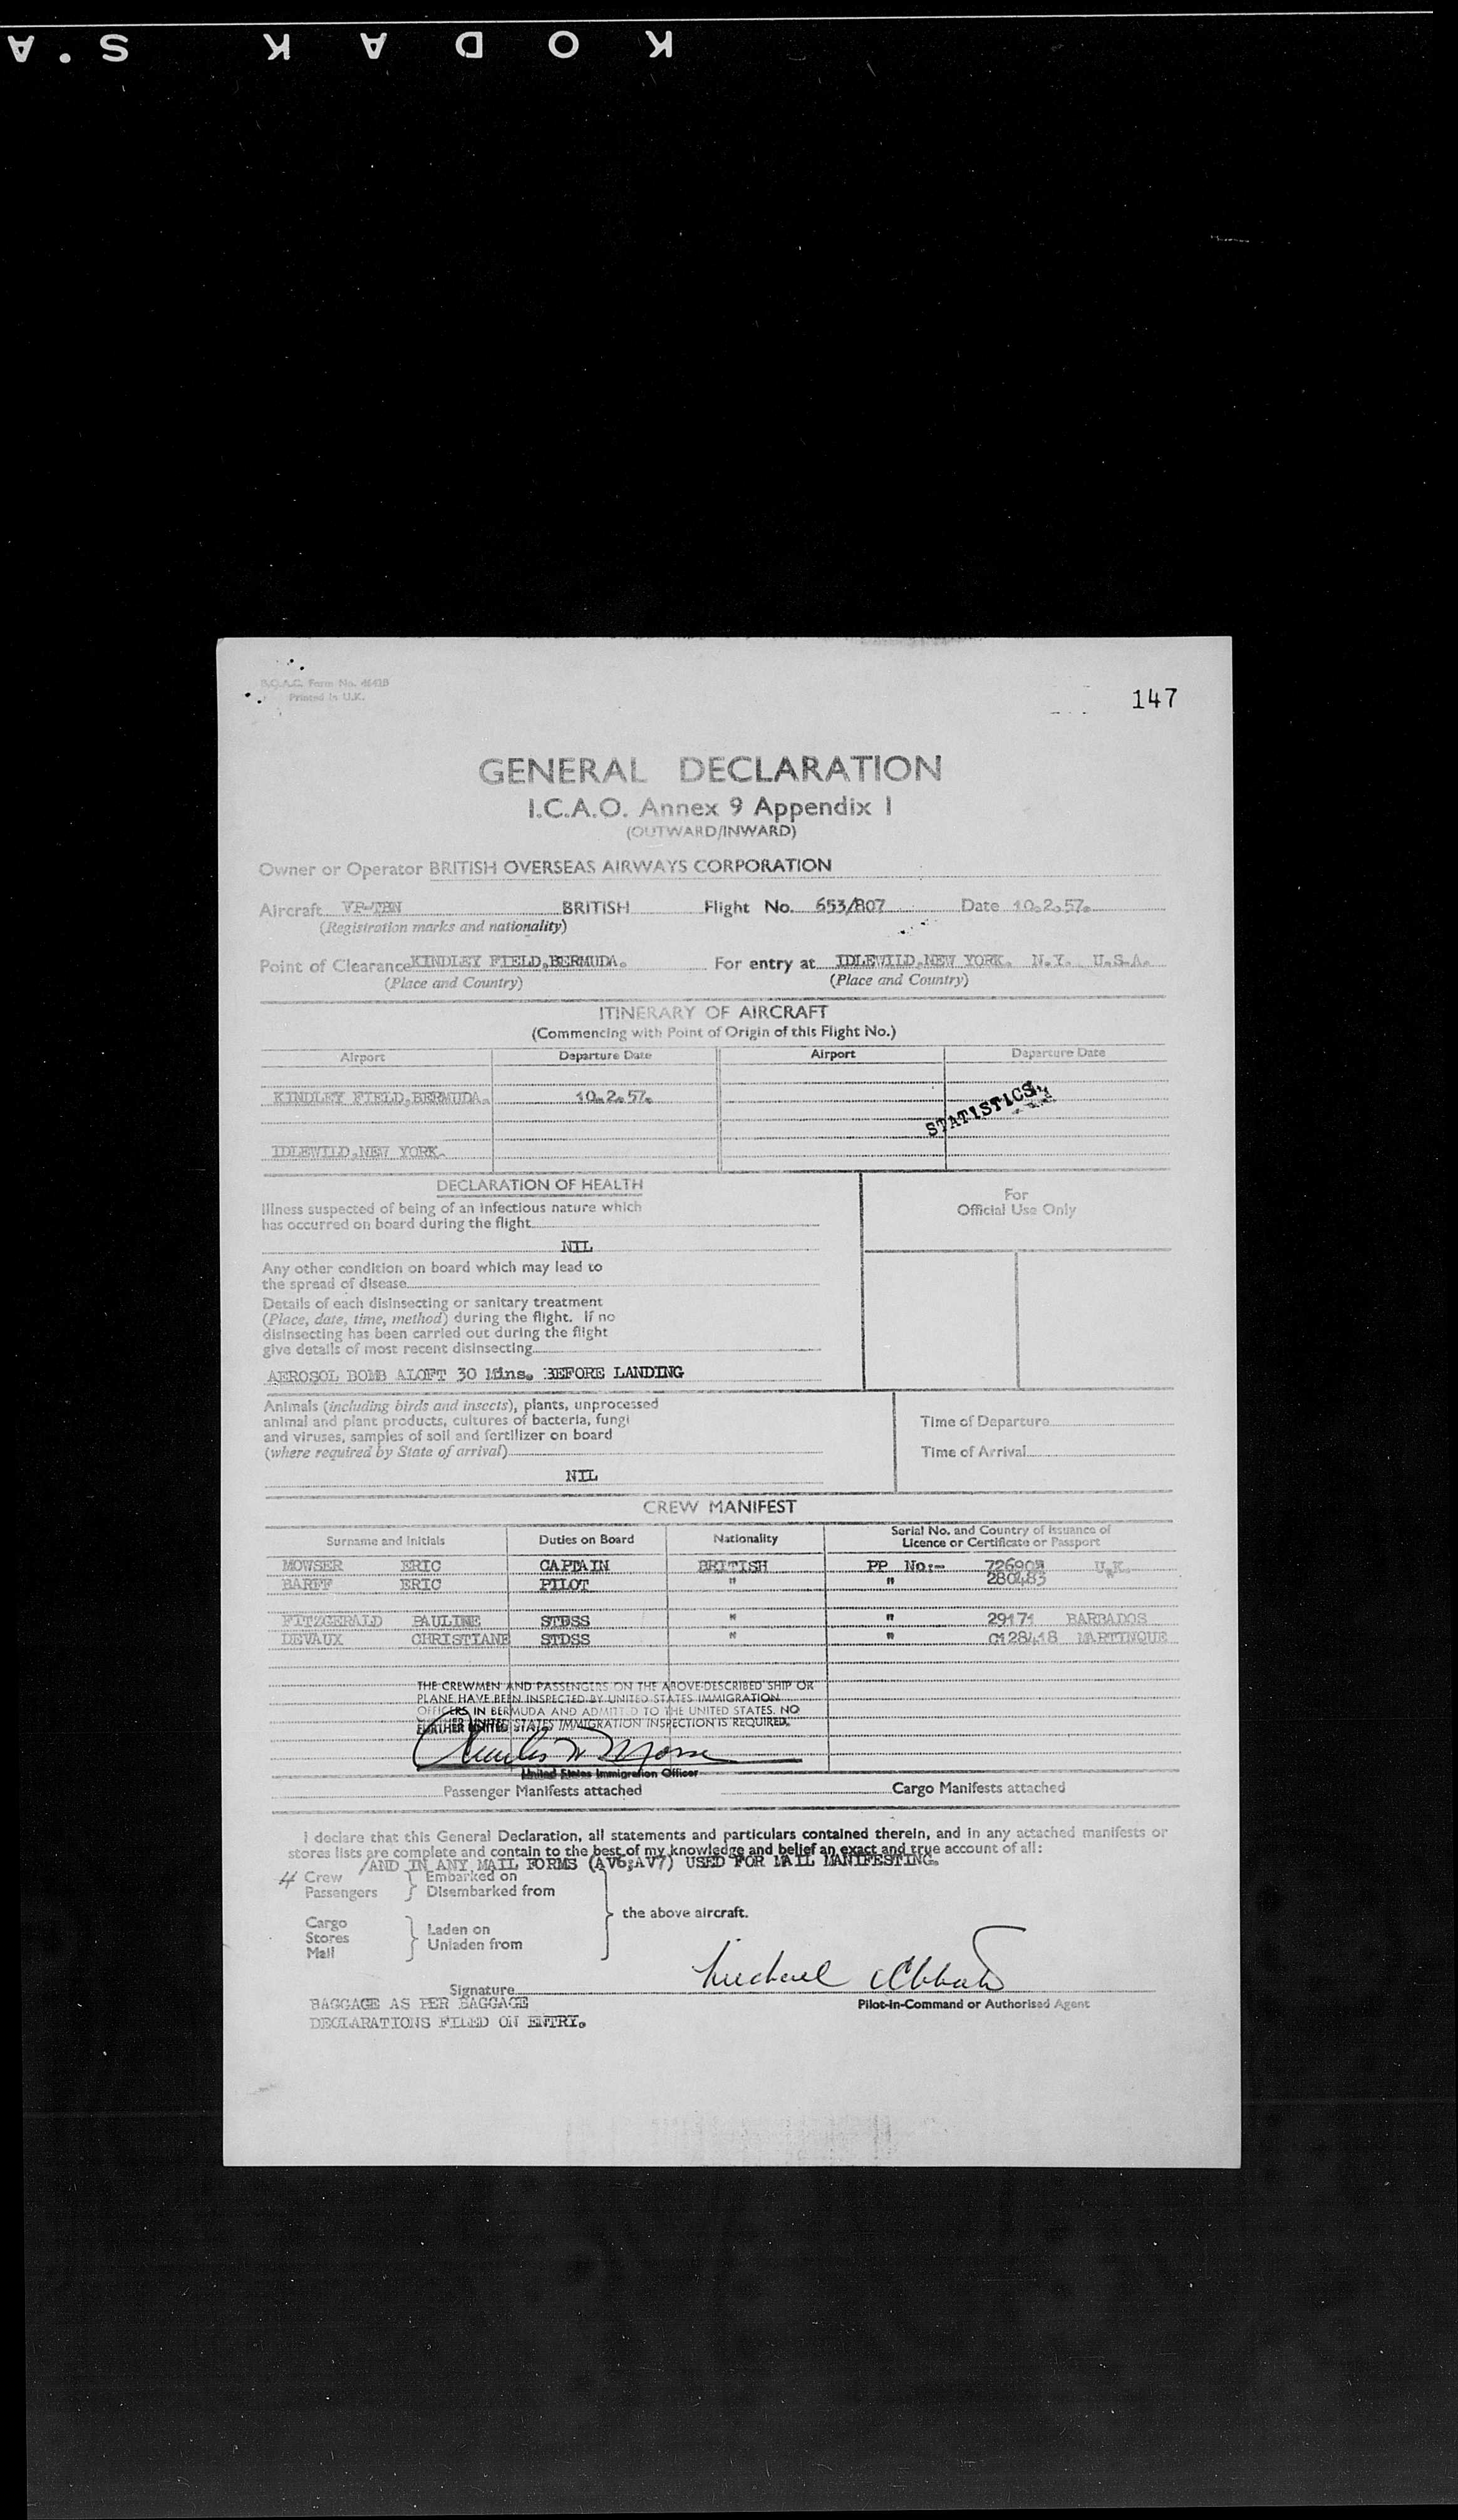 KODAK S.A
B.O.A.C. Form No.
Printed in U.K.
147
GENERAL DECLARATION
I.C.A.O. Annex 9 Appendix I
(OUTWARD/INWARD)
Owner or Operator BRITISH OVERSEAS AIRWAYS CORPORATION
Aircraft VP-TBN BRITISH Flight No. 653/807 Date 10.2.57.
(Registration marks and nationality)
Point of Clearance KINDLEY FIELD,BERMUDA. For entry at IDLEWILD,NEW YORK. N.Y. U.S.A.
(Place and Country) (Place and Country)
ITINERARY OF AIRCRAFT
(Commencing with Point of Origin of this Flight No.)
Airport Departure Date Airport Departure Date
KINDLEY FIELD,BERMUDA. 10.2.57.
STATISTICS
IDLEWILD,NEW YORK.
DECLARATION OF HEALTH
For
Official Use Only
Illness suspected of being of an infectious nature which
has occurred on board during the flight
NIL
Any other condition on board which may lead to
the spread of disease
Details of each disinsecting or sanitary treatment
(Place, date, time, method) during the flight. If no
disinsecting has been carried out during the flight
give details of most recent disinsecting
AEROSOL BOMB ALOFT 30 Mins. BEFORE LANDING
Animals (including birds and insects), plants, unprocessed
animal and plant products, cultures of bacteria, fungi
and viruses, samples of soil and fertilizer on board
(where required by State of arrival)
NIL
Time of Departure
Time of Arrival
CREW MANIFEST
Surname and Initials Duties on Board Nationality Serial No. and Country of Issuance of
Licence or Certificate or Passport
MOWSER ERIC CAPTAIN BRITISH PP No:- U.K.
BARFF ERIC PILOT " " 280483 "
FITZGERALD PAULINE STDSS " " 29171 BARBADOS
DEVAUX CHRISTIANE STDSS " " C128418 MARTINQUE
THE CREWMEN AND PASSENGERS ON THE ABOVE-DESCRIBED SHIP OR
PLANE HAVE BEEN INSPECTED BY UNITED STATES IMMIGRATION
OFFICERS IN BERMUDA AND ADMITTED TO THE UNITED STATES. NO
FURTHER UNITED STATES IMMIGRATION INSPECTION IS REQUIRED.
Charles W Morse
United States Immigration Officer
Passenger Manifests attached Cargo Manifests attached
I declare that this General Declaration, all statements and particulars contained therein, and in any attached manifests or
stores lists are complete and contain to the best of my knowledge and belief an exact and true account of all:
/AND IN ANY MAIL FORMS (AV6;AV7) USED FOR MAIL MANIFESTING.
4 Crew Embarked on
Passengers Disembarked from
the above aircraft.
Cargo
Stores Laden on
Mail Unladen from
Michael
Signature
BAGGAGE AS PER BAGGAGE
Pilot-in-Command or Authorised Agent
DECLARATIONS FILED ON ENTRY.